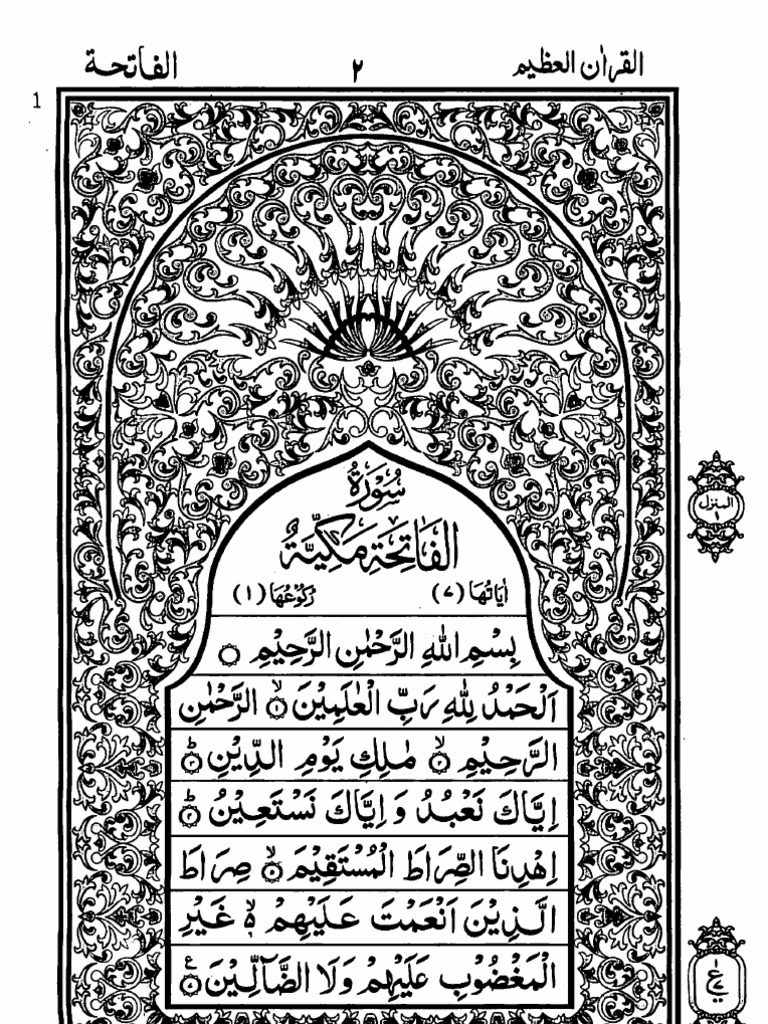 القرآن العظيم ٢ الفاتحة
1
سُوْرَةُ
الْفَاتِحَةِ مَكِّيَّةٌ
اٰيَاتُهَا (٧) رُكُوْعُهَا (١)
بِسْمِ اللّٰهِ الرَّحْمٰنِ الرَّحِيْمِ
اَلْحَمْدُ لِلّٰهِ رَبِّ الْعٰلَمِيْنَ ۙ۝١ الرَّحْمٰنِ
الرَّحِيْمِ ۙ۝٢ مٰلِكِ يَوْمِ الدِّيْنِ ؕ۝٣
اِيَّاكَ نَعْبُدُ وَ اِيَّاكَ نَسْتَعِيْنُ ؕ۝٤
اِهْدِنَا الصِّرَاطَ الْمُسْتَقِيْمَ ۙ۝٥ صِرَاطَ
الَّذِيْنَ اَنْعَمْتَ عَلَيْهِمْ ۙ۬ۦ غَيْرِ
الْمَغْضُوْبِ عَلَيْهِمْ وَلَا الضَّآلِّيْنَ ۧ۝
المنزل ١